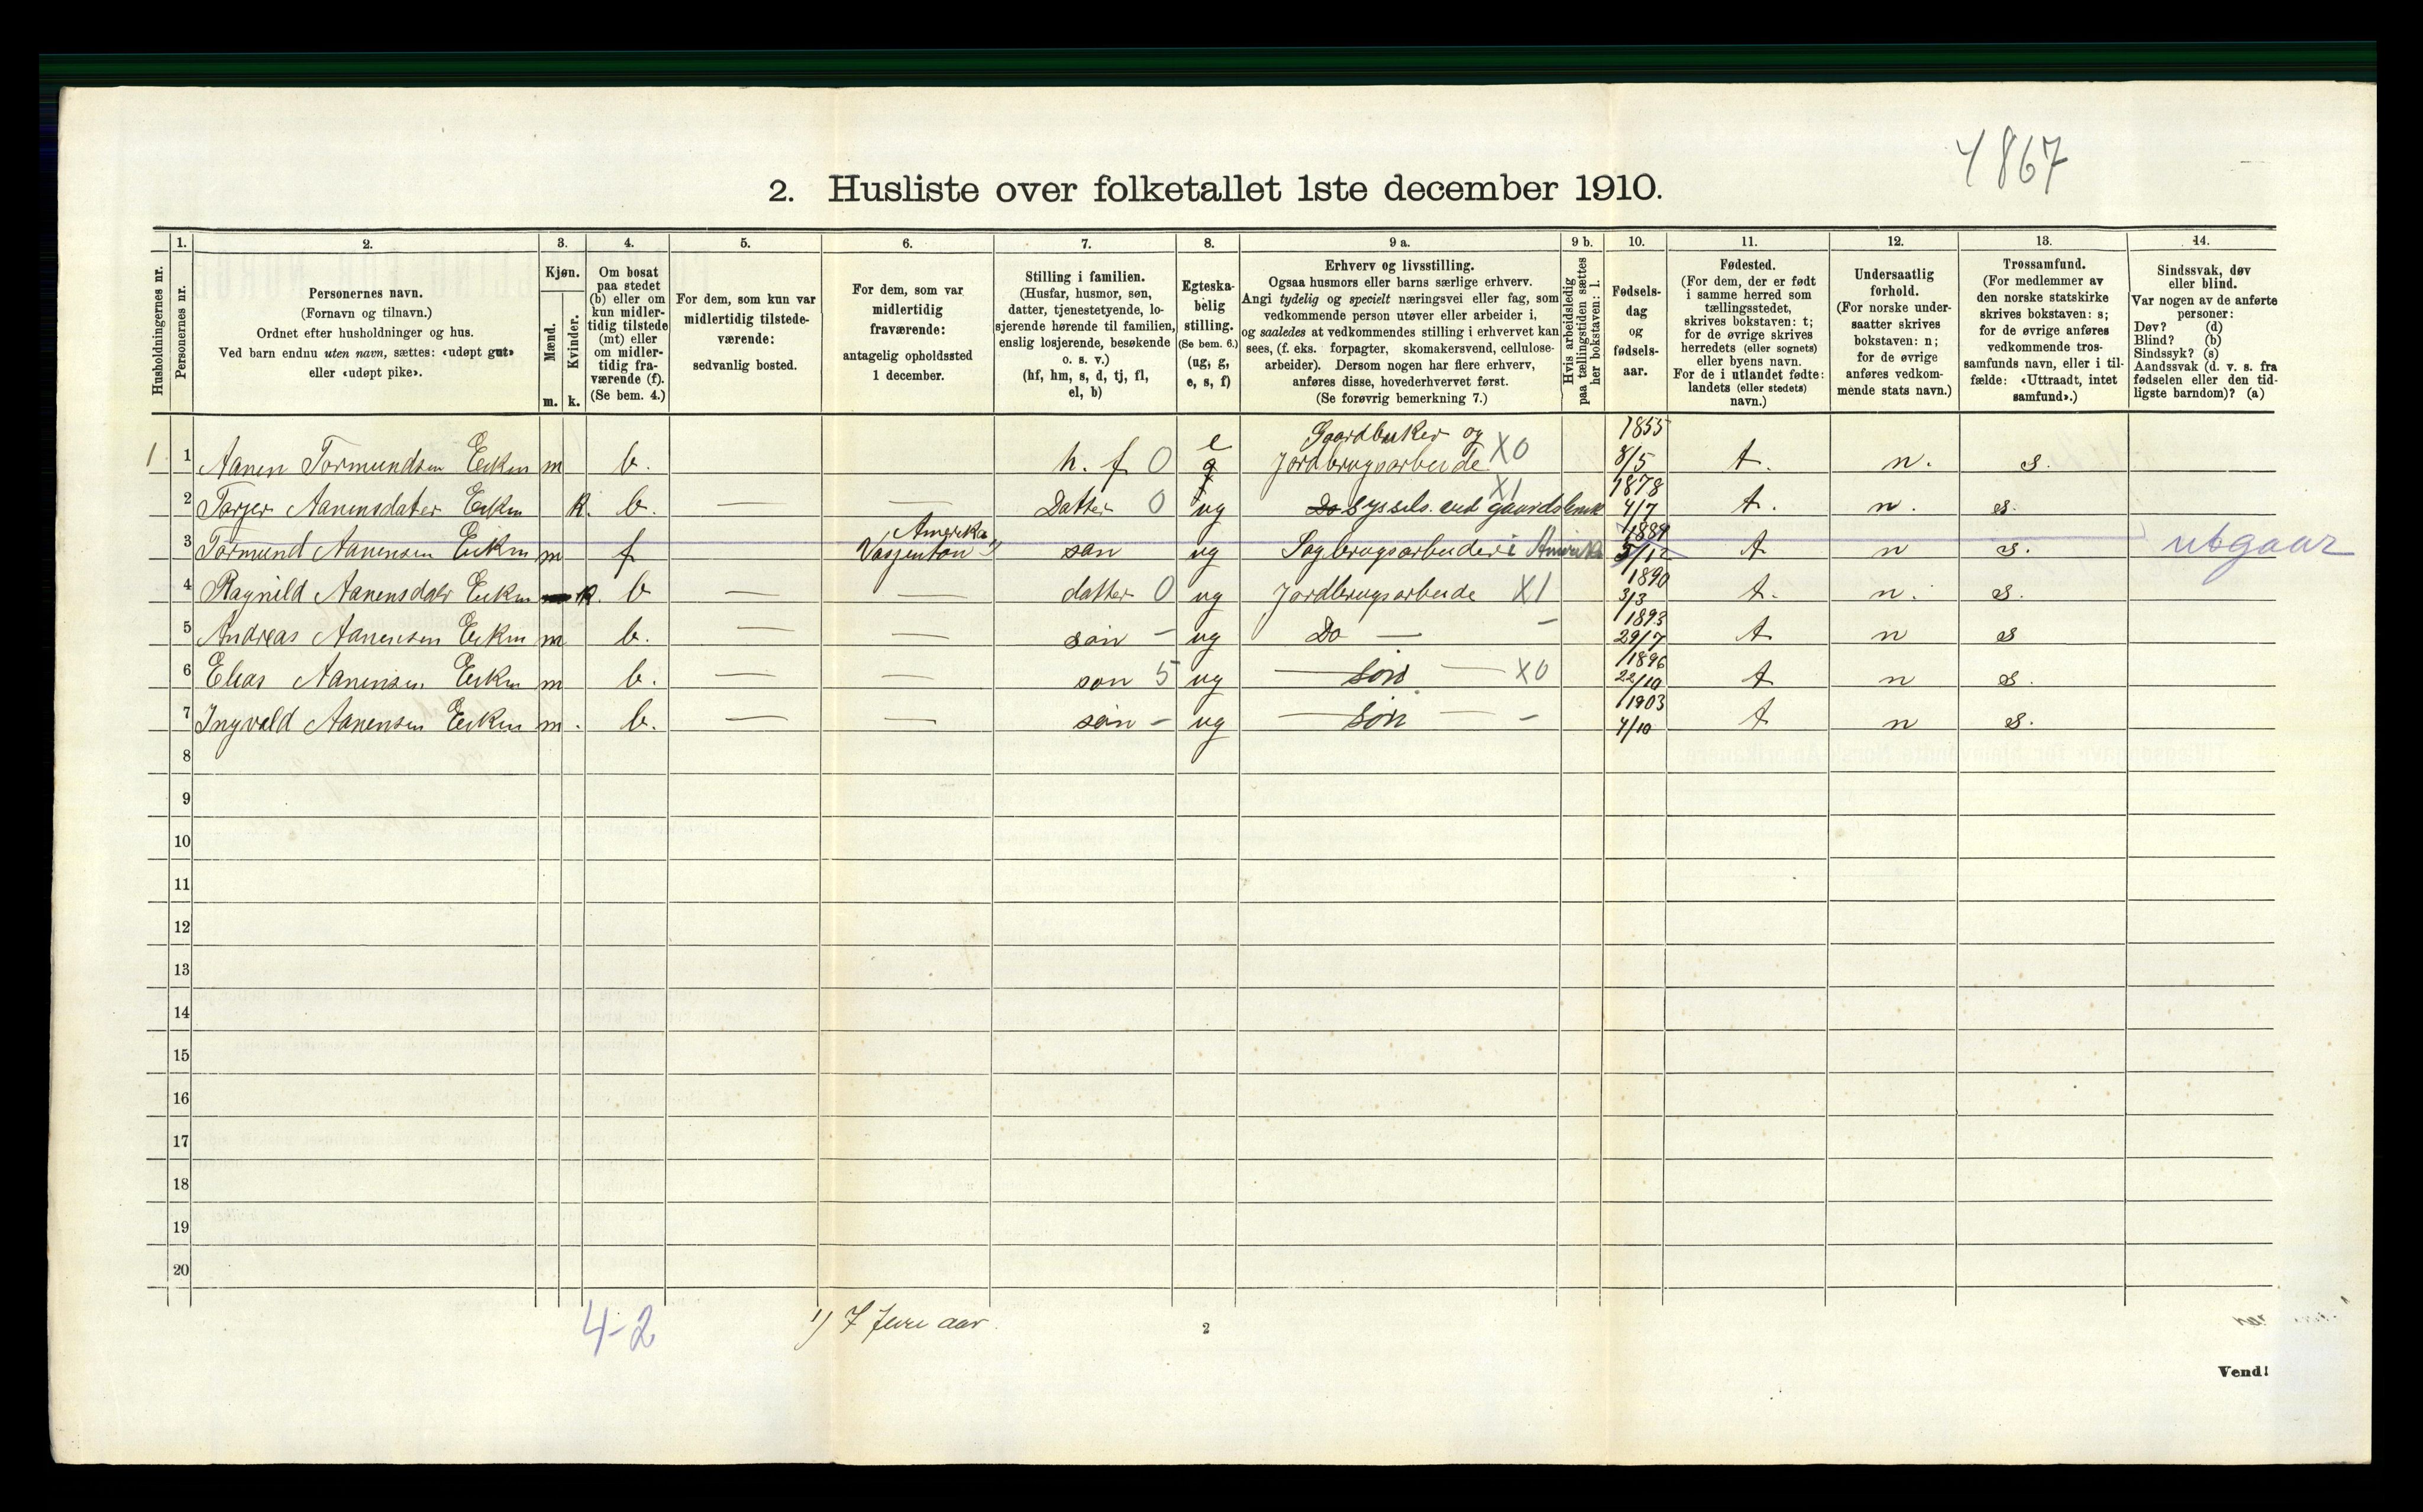 4867
2. Husliste over folketallet 1ste december 1910.
Husholdningernes nr.
1.
Personernes nr.
2.
Personernes navn.
(Fornavn og tilnavn.)
Ordnet efter husholdninger og hus.
Ved barn endnu uten navn, sættes: «udøpt gut»
eller «udøpt pike».
3.
Kjøn.
Mænd.
Kvinder.
m. k.
4.
Om bosat
paa stedet
(b) eller om
kun midler-
tidig tilstede
(mt) eller
om midler-
tidig fra-
værende (f).
(Se bem. 4.)
5.
For dem, som kun var
midlertidig tilstede-
værende:
sedvanlig bosted.
6.
For dem, som var
midlertidig
fraværende:
antagelig opholdssted
1 december.
7.
Stilling i familien.
(Husfar, husmor, søn,
datter, tjenestetyende, lo-
sjerende hørende til familien,
enslig losjerende, besøkende
o. s. v.)
(hf, hm, s, d, tj, fl,
el, b)
8.
Egteska-
belig
stilling.
(Se bem. 6.)
(ug, g,
e, s, f)
9 a.
Erhverv og livsstilling.
Ogsaa husmors eller barns særlige erhverv.
Angi tydelig og specielt næringsvei eller fag, som
vedkommende person utøver eller arbeider i,
og saaledes at vedkommendes stilling i erhvervet kan
sees, (f. eks. forpagter, skomakersvend, cellulose-
arbeider). Dersom nogen har flere erhverv,
anføres disse, hovederhvervet først.
(Se forøvrig bemerkning 7.)
9 b.
Hvis arbeidsledig
paa tællingstiden sættes
her bokstaven: l.
10.
Fødsels-
dag
og
fødsels-
aar.
11.
Fødested.
(For dem, der er født
i samme herred som
tællingsstedet,
skrives bokstaven: t;
for de øvrige skrives
herredets (eller sognets)
eller byens navn.
For de i utlandet fødte:
landets (eller stedets)
navn.)
12.
Undersaatlig
forhold.
(For norske under-
saatter skrives
bokstaven: n;
for de øvrige
anføres vedkom-
mende stats navn.)
13.
Trossamfund.
(For medlemmer av
den norske statskirke
skrives bokstaven: s;
for de øvrige anføres
vedkommende tros-
samfunds navn, eller i til-
fælde: «Uttraadt, intet
samfund».)
14.
Sindssvak, døv
eller blind.
Var nogen av de anførte
personer:
Døv? (d)
Blind? (b)
Sindssyk? (s)
Aandssvak (d. v. s. fra
fødselen eller den tid-
ligste barndom)? (a)
1 1 Aanen Tormundsen Eiken m b. h. f 0 e g Gaardbruker og Jordbrugsarbeide X0 1855 8/5 t. n. s.
2 Torjer Aanensdater Eiken k. b. — — Datter 0 ug Do Syssels. ved gaardsbruk X1 1878 4/7 t. n. s.
3 Tormund Aanensen Eiken m f Amerika Vasjenton 1) søn ug Sagbrugsarbeider i Amerika 1889 5/12 t n s. utgaar
4 Ragnild Aanensdatr Eiken k. b — — datter 0 ug Jordbrugsarbeide X1 1890 3/3 t. n. s.
5 Andreas Aanensen Eiken m b. — — søn - ug Do — - 1893 29/7 t n s
6 Elias Aanensen Eiken m b. — — søn 5 ug — søn — X0 1896 22/10 t n s.
7 Ingvald Aanensen Eiken m. b. — — søn - ug — søn — - 1903 4/10 t n s.
8
9
10
11
12
13
14
15
16
17
18
19
20
4-2
1) 7 aar.
2
Vend!